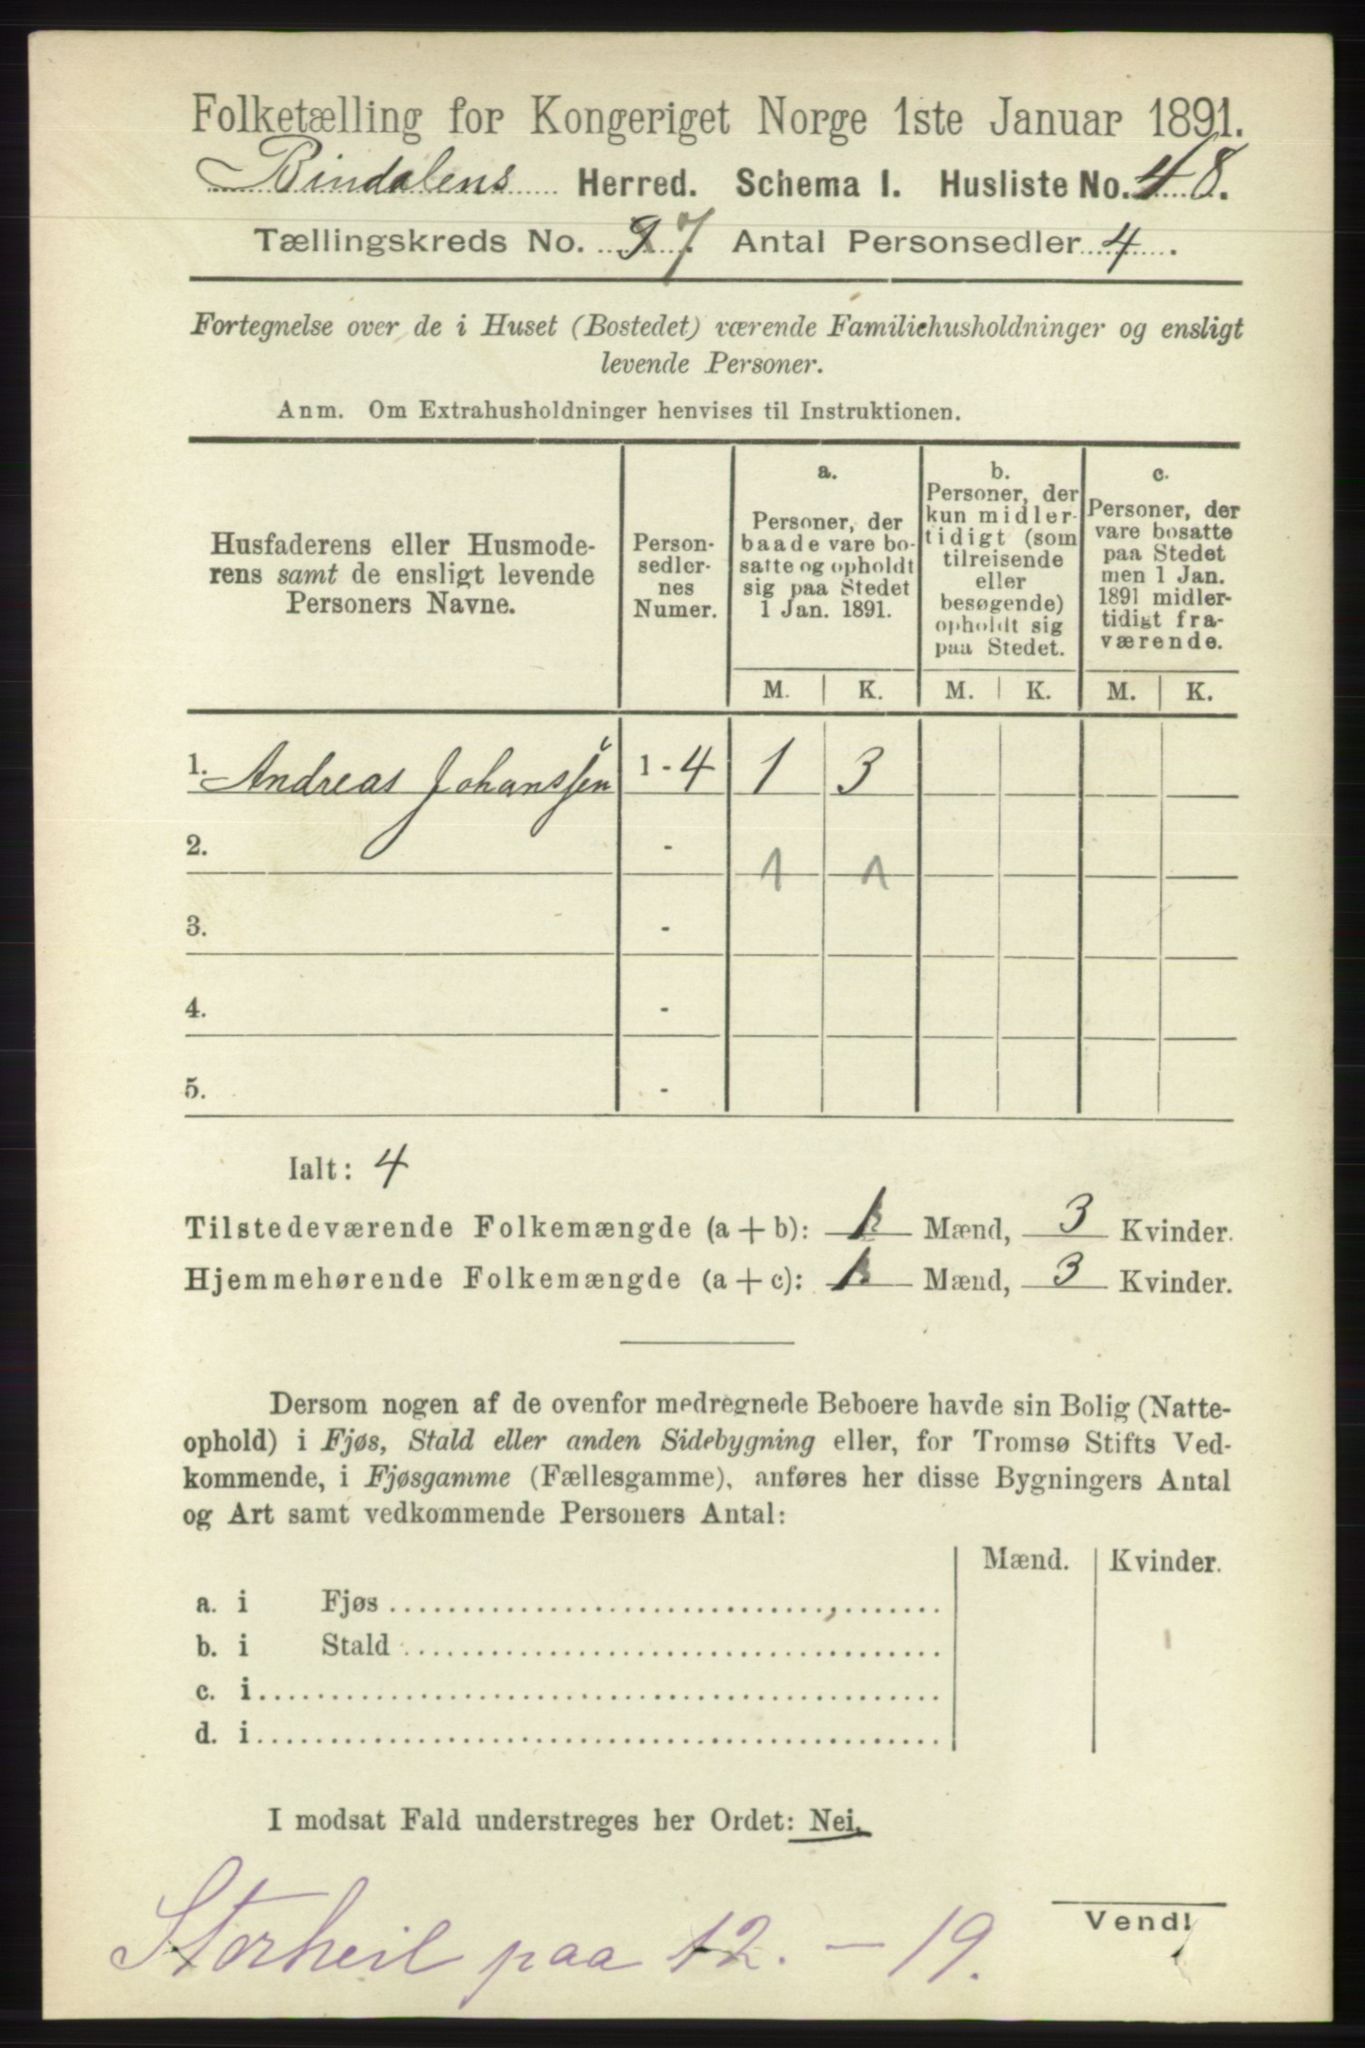 Folketælling for Kongeriget Norge 1ste Januar 1891.
Bindalens Herred. Schema I. Husliste No. 48.
Tællingskreds No. 9 7. Antal Personsedler 4.
Fortegnelse over de i Huset (Bostedet) værende Familiehusholdninger og ensligt
levende Personer.
Anm. Om Extrahusholdninger henvises til Instruktionen.
Husfaderens eller Husmode-
rens samt de ensligt levende
Personers Navne.
Person-
sedler-
nes
Numer.
a.
Personer, der
baade vare bo-
satte og opholdt
sig paa Stedet
1 Jan. 1891.
b.
Personer, der
kun midler-
tidigt (som
tilreisende
eller
besøgende)
opholdt sig
paa Stedet.
c.
Personer, der
vare bosatte
paa Stedet
men 1 Jan.
1891 midler-
tidigt fra-
værende.
M. K. M. K. M. K.
1. Andreas Johanssen 1-4 1 3
2. - 1 1
3. -
4. -
5. -
Ialt: 4
Tilstedeværende Folkemængde (a + b): 1 Mænd, 3 Kvinder.
Hjemmehørende Folkemængde (a + c): 1 Mænd, 3 Kvinder.
Dersom nogen af de ovenfor medregnede Beboere havde sin Bolig (Natte-
ophold) i Fjøs, Stald eller anden Sidebygning eller, for Tromsø Stifts Ved-
kommende, i Fjøsgamme (Fællesgamme), anføres her disse Bygningers Antal
og Art samt vedkommende Personers Antal:
Mænd. Kvinder.
a. i Fjøs
b. i Stald
c. i
d. i
I modsat Fald understreges her Ordet: Nei.
Vend!
Storheil paa 12. - 19.